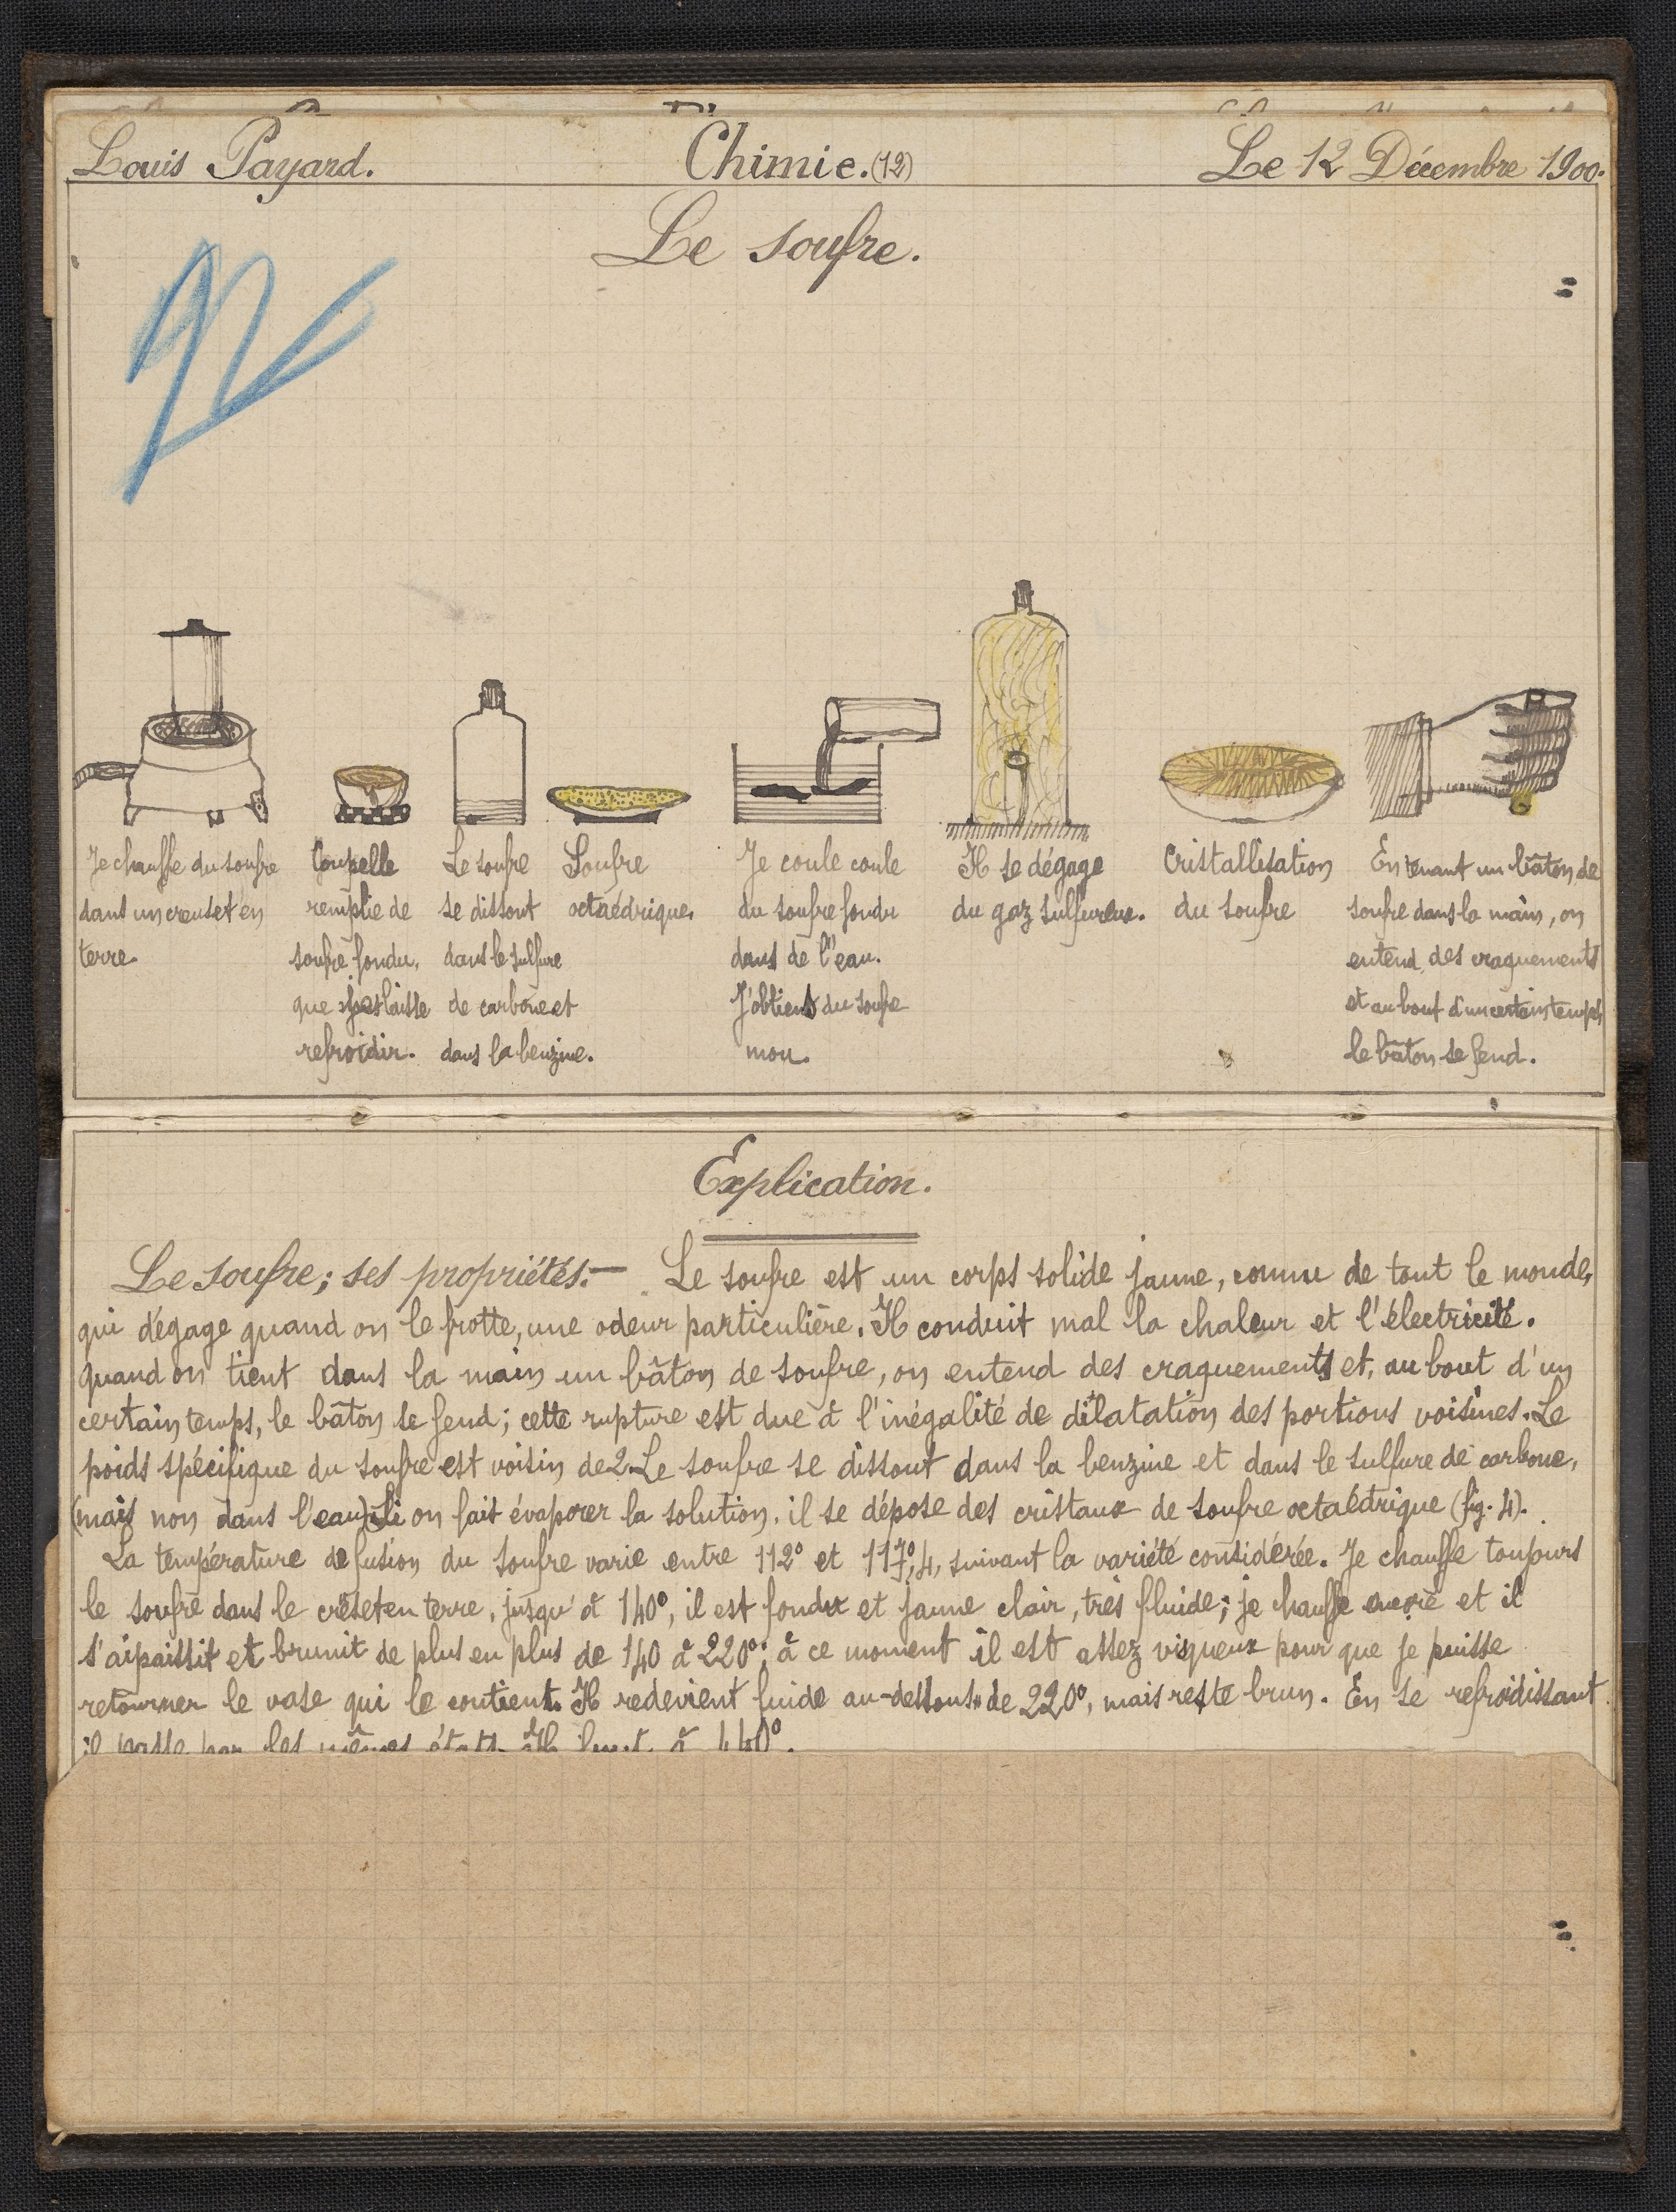 Louis Payard.
Chimie. (12)
Le 12 Décembre 1900.
Le soufre.
Je chauffe du soufre
dans un creuset en
terre.
Coupelle
remplie de
soufre fondu,
que laisse
refroidir.
Le soufre
se dissout
dans le sulfure
de carbone et
dans la benzine.
Soufre
octaédrique.
Je coule coule
du soufre fondu
dans de l'eau.
J'obtiens du soufre
mou.
Il se dégage
du gaz sulfureux.
Cristallisation
du soufre
En tenant un bâton de
soufre dans la main, on
entend des craquements
et au bout d'un certain temps,
le bâton se fend.
Explication.
Le soufre; ses propriétés.— Le soufre est un corps solide jaune, connu de tout le monde,
qui dégage quand on le frotte, une odeur particulière. Il conduit mal la chaleur et l'électricité.
Quand on tient dans la main un bâton de soufre, on entend des craquements et, au bout d'un
certain temps, le bâton se fend; cette rupture est due à l'inégalité de dilatation des portions voisines. Le
poids spécifique du soufre est voisin de 2. Le soufre se dissout dans la benzine et dans le sulfure de carbone,
(mais non dans l'eau) si on fait évaporer la solution, il se dépose des cristaux de soufre octaédrique (fig. 4).
La température de fusion du soufre varie entre 112° et 117°,4, suivant la variété considérée. Je chauffe toujours
le soufre dans le creuset en terre, jusqu'à 140°, il est fondu et jaune clair, très fluide; je chauffe encore et il
s'aipaissit et brunit de plus en plus de 140 à 220°; à ce moment il est assez visqueux pour que je puisse
retourner le vase qui le contient. Il redevient fuide au-dessous de 220°, mais reste brun. En se refroidissant
il passe par les mêmes états. Il bout à 440°.